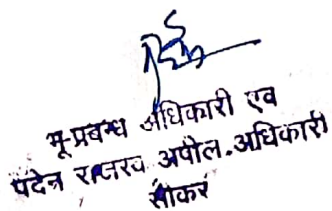 भू-प्रबन्ध अधिकारी एव
पदेन राजस्व अपील.अधिकारी
सीकर